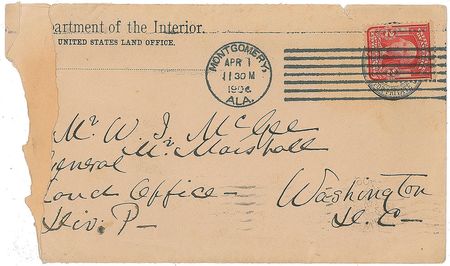 partment of the Interior.
UNITED STATES LAND OFFICE.
MONTGOMERY,
APR 1
11 30 M
ALA.
Mr. W. J. McGee
General Mr. Marshall
Land Office - Washington
Div. P - D. C -